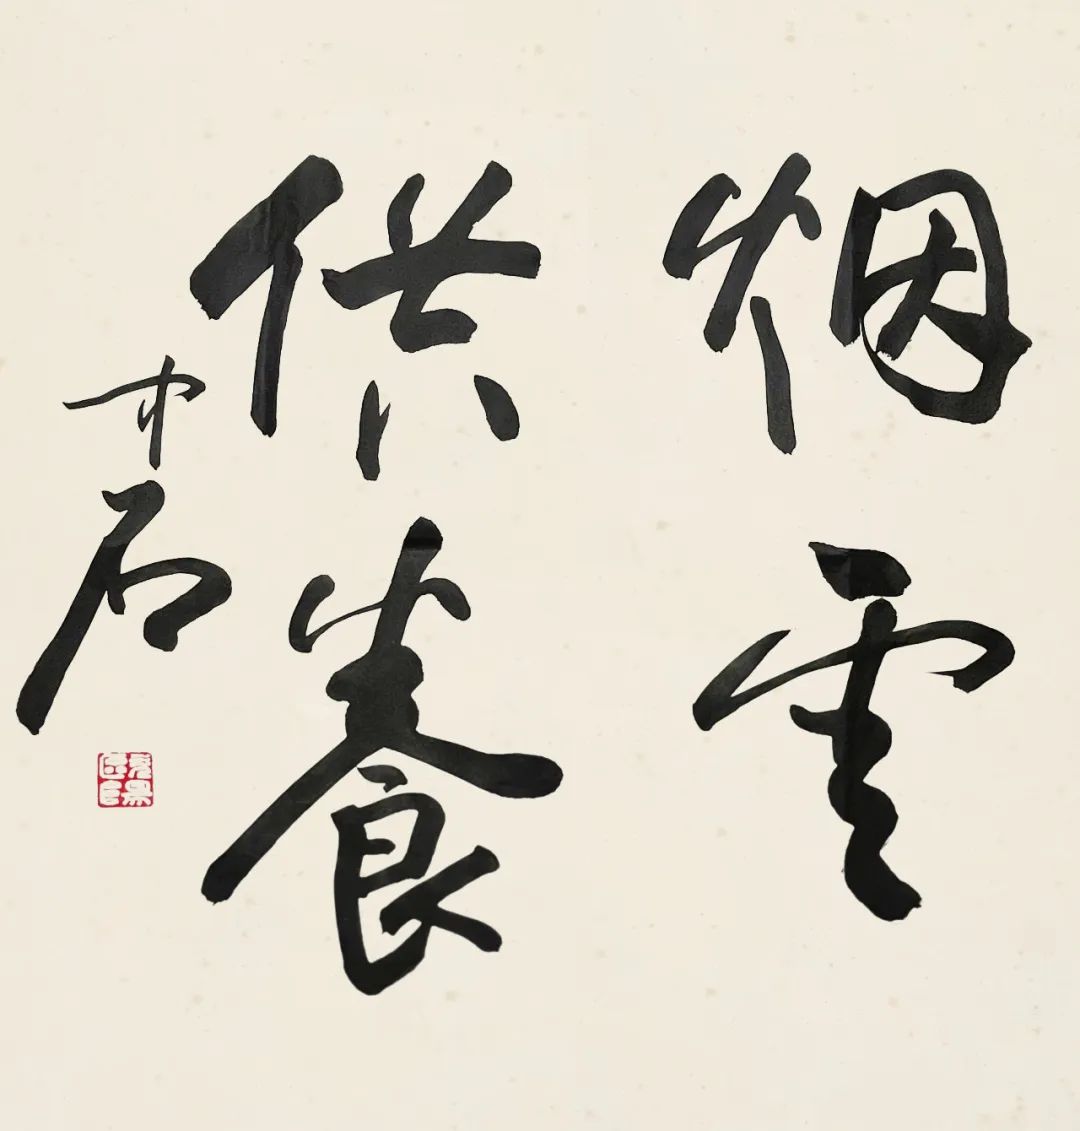 烟雲
供養
中石